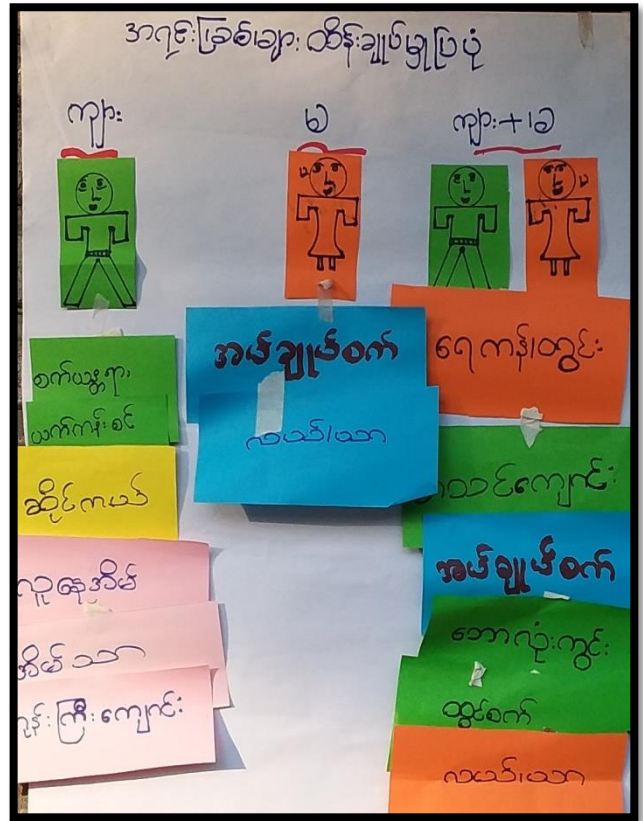 အရင်းမြစ်များ ထိန်းချုပ်မှုပြပုံ
ကျား
မ
ကျား+မ
စက်ယန္တရား
ယက်ကန်းစင်
ဆိုင်ကယ်
လူနေအိမ်
အိမ်သာ
ဘုန်းကြီးကျောင်း
အပ်ချုပ်စက်
လယ်/ယာ
ရေကန်/တွင်း
စာသင်ကျောင်း
အပ်ချုပ်စက်
ဘောလုံးကွင်း
ထွင်စက်
လယ်/ယာ